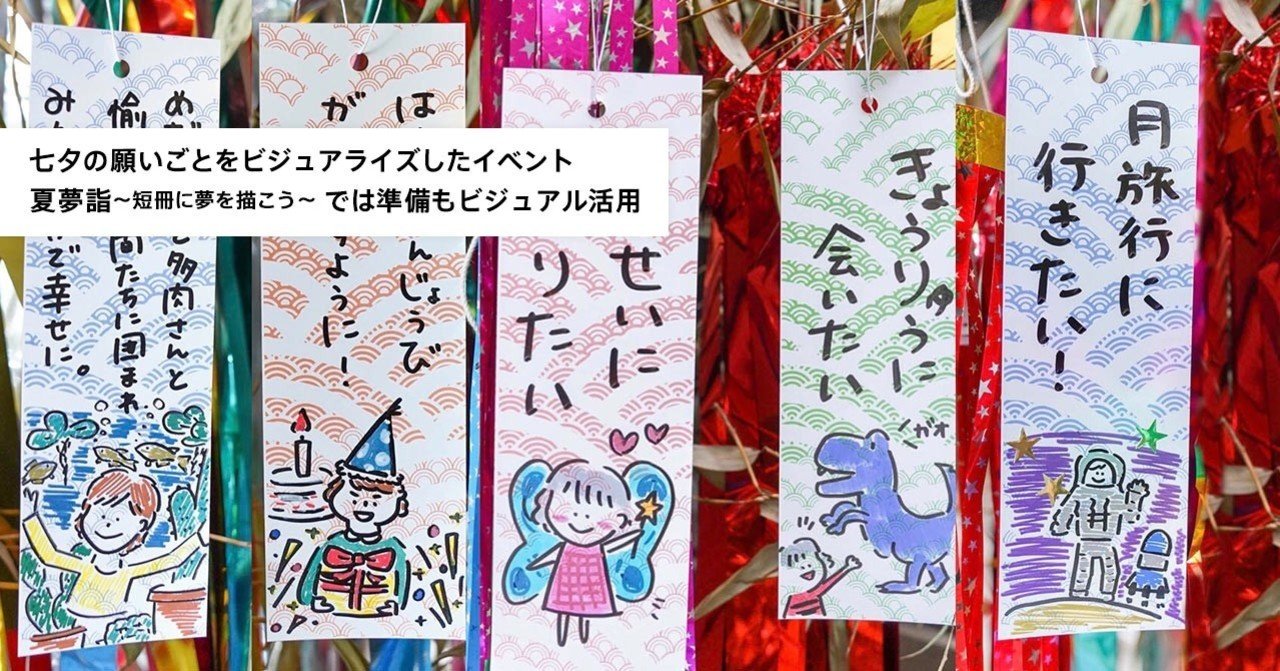 七夕の願いごとをビジュアライズしたイベント
夏夢詣～短冊に夢を描こう～ では準備もビジュアル活用
めだ
と多肉さんと
愉
間たちに囲まれ
み
で幸せに。
は
んじょうび
が
ように！
せいに
りたい
きょうりゅうに
会いたい
ガオ
月旅行に
行きたい！